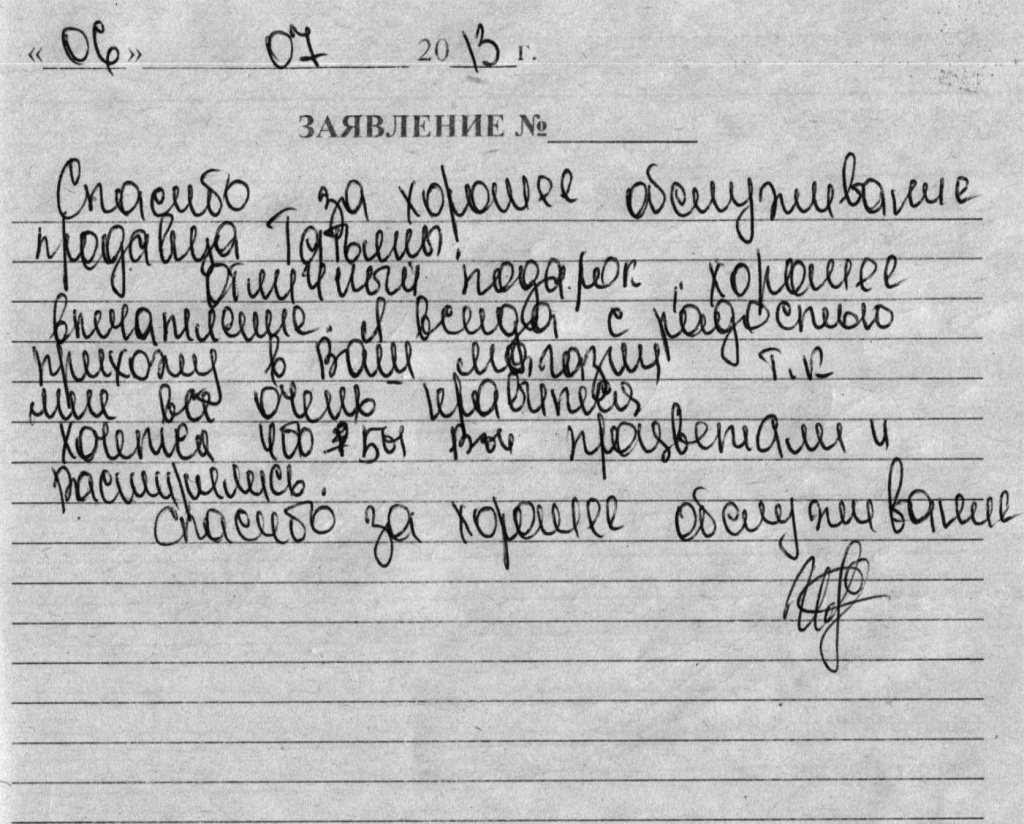 « 06 » 07 2013 г.
ЗАЯВЛЕНИЕ №
Спасибо за хорошее обслуживание
продавца Татьяны.
Отличный подарок, хорошее
впечатление. Я всегда с радостью
прихожу в Ваш магазин т.к
мне все очень нравится
хочется что бы Вы процветали и
расширялись.
Спасибо за хорошее обслуживание